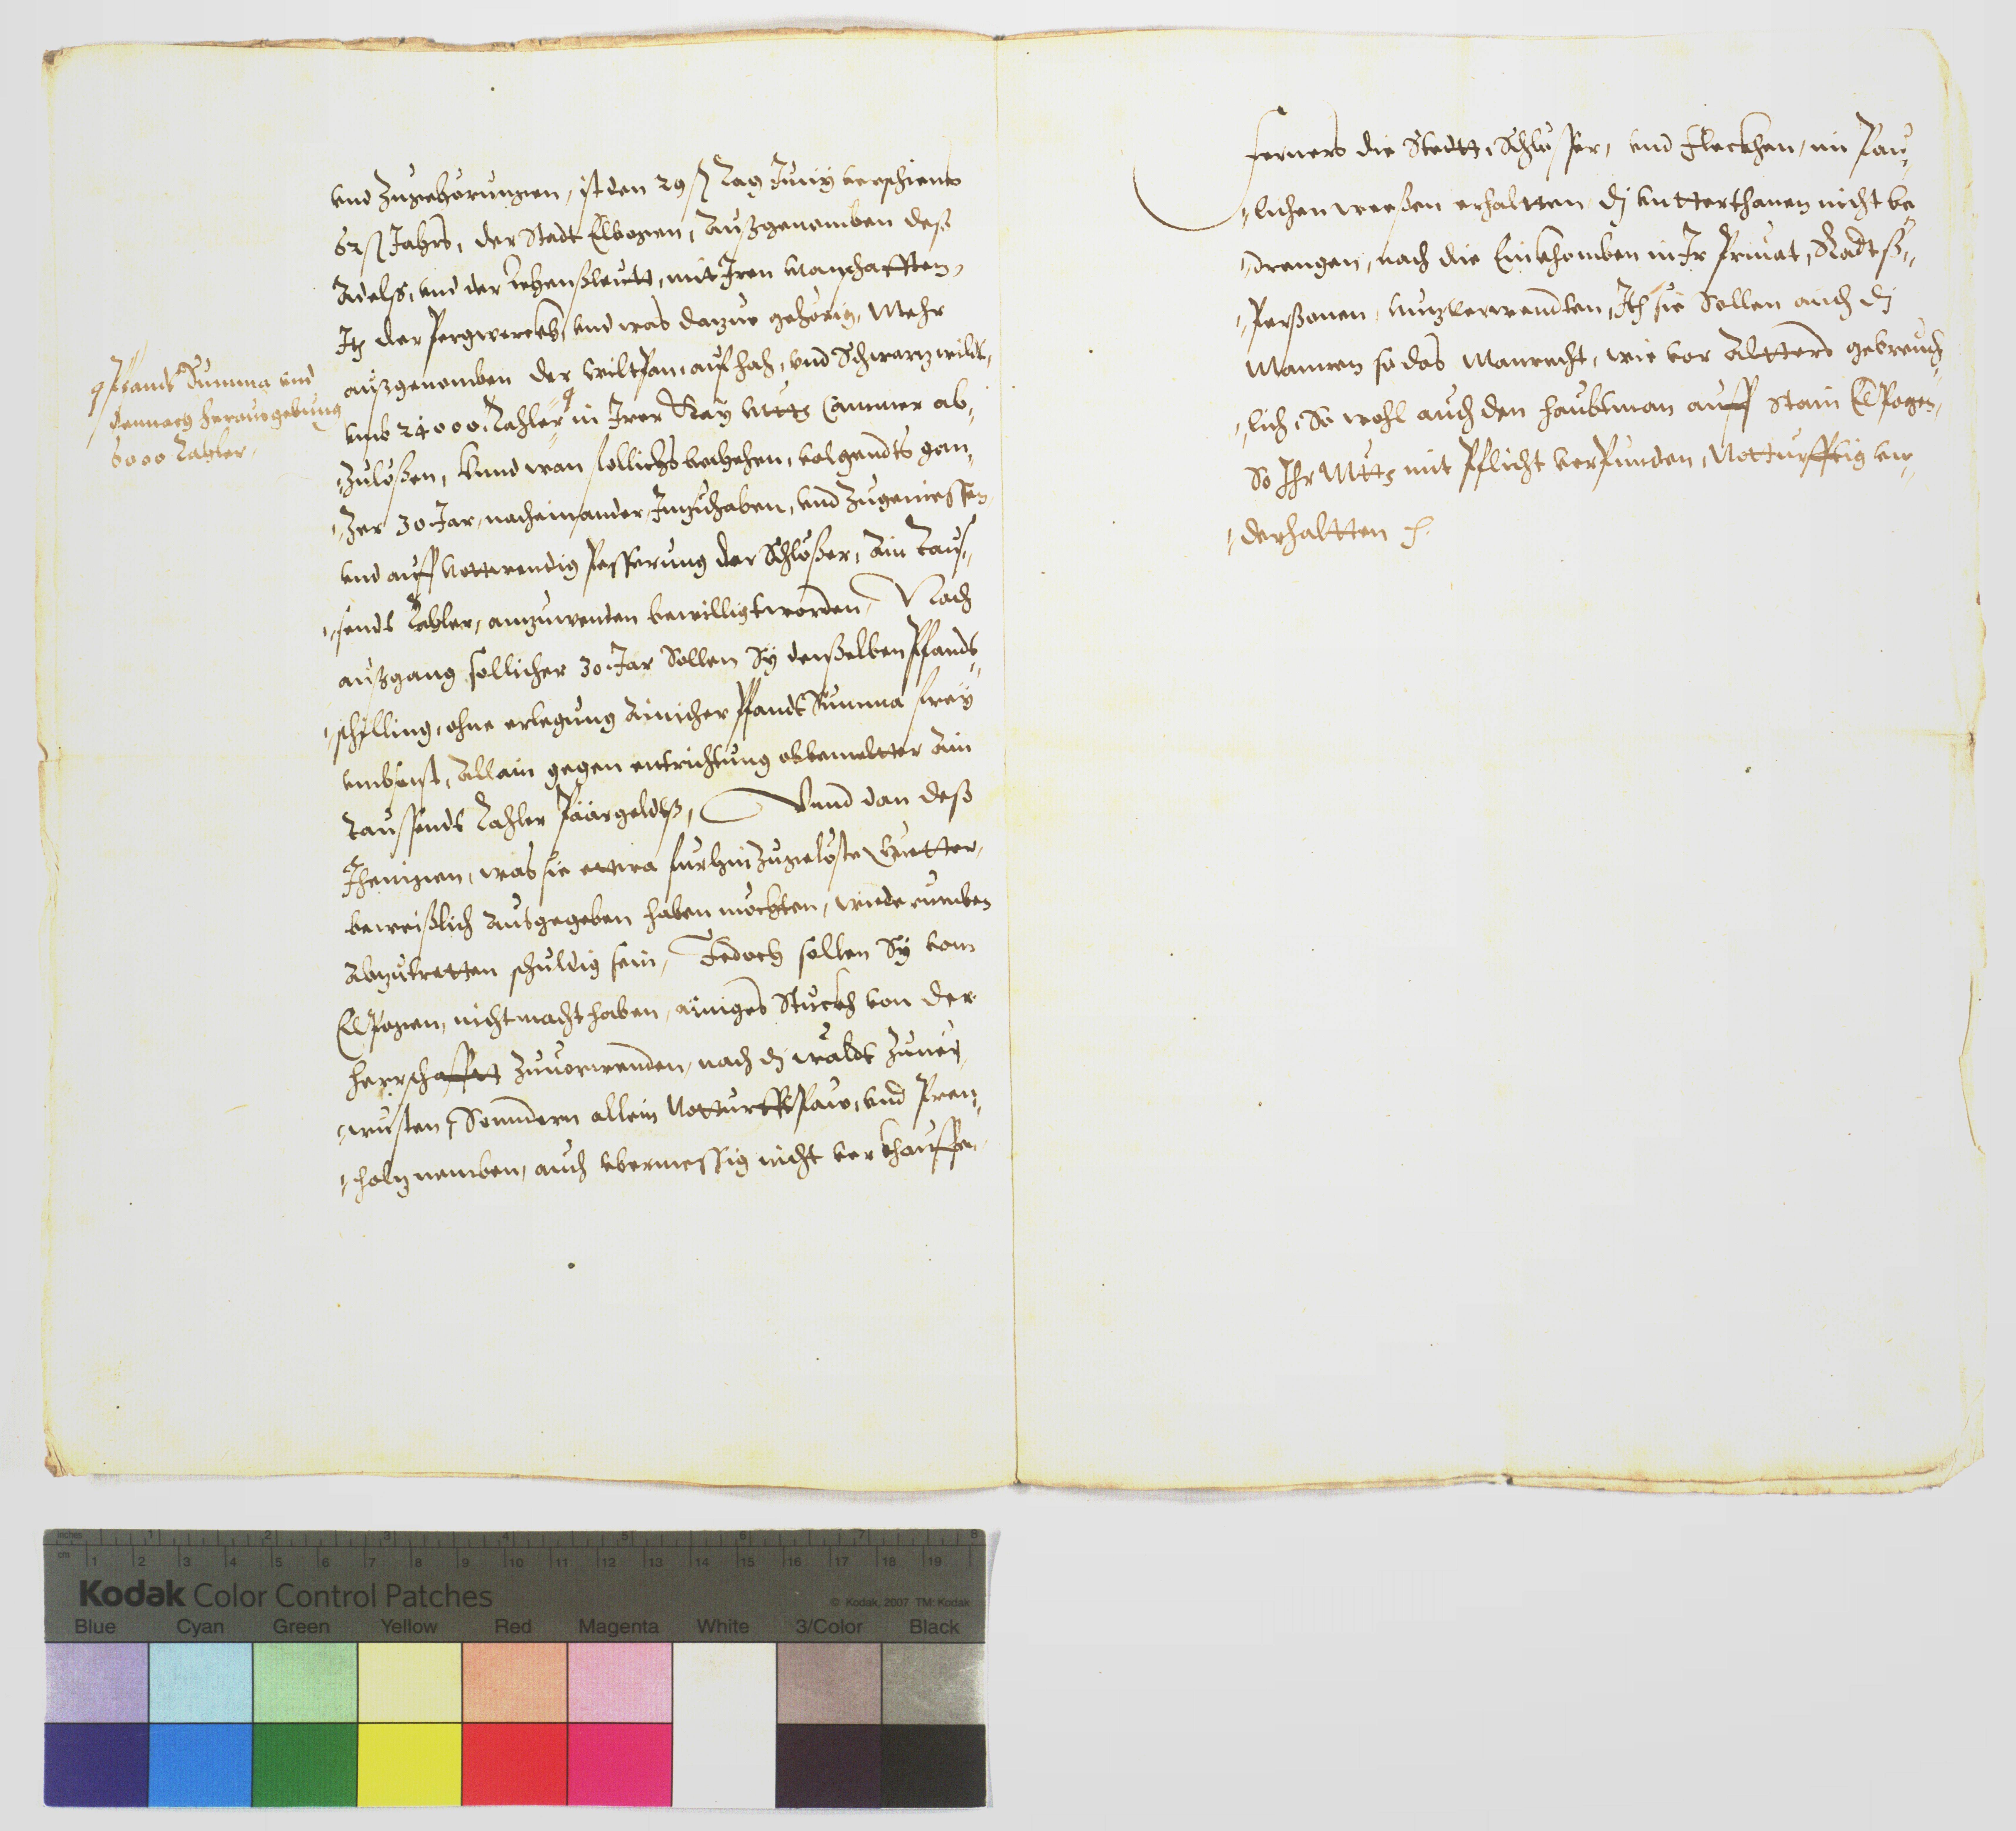 vnd Zugehörungen, ist den 29ß Tag Junÿ verschiens
62ß Jahrs, der Stadt Elbogen, Außgenomben deß
Adelß, vnd der Lehenßleutt, mit Iren Manschafften,
It der Pergwerckh, vnd was darzue gehörig, Mehr
außgenomben der Wiltpan, auf hoch, vnd Schwarzwildt,
vmb 24000 Tahler in Irer Kaÿ Mtt Cammer ab,
Zulößen, Vnnd wan sollichs beschehen, volgendts gan,
Zer 30 Jar, nacheinander, Innzuhaben, vnd Zugeniessen,
vnd auff Notwendig Pesserung der Schlößer, Ain Tau,
send Tahler, anzuwenten bewilligt worden, Nach
außgang sollicher 30 Jar Sollen Sÿ denselben Pfandt
schilling, ohne erlegung Ainicher Pfandt Summa freÿ
vmbsonst, Allain gegen entrichtung obbemelter Ain
Taussendt Tahler Paargeldtß, Vnnd dan deß
Jhenigen, was sie etwa fur hinzugelöste Guetter,
beweißlich Ausgegeben haben möchten, wiederumben
Abzutretten schuldig sein, Jedoch sollen Sÿ vom
Elpogen, nicht macht haben, ainiges Stuckh von der
herrschafft Zuuorwenden, noch di waldt Zuuer,
wusten, Sonndern allein Notturfft Paw, vnd Pren,
holz nemben, auch vbermessig nicht verkhauffen,
Pfandt Summa vnd
dennoch herausgebung
6000 Tahler,
Ferners die Stedtt, Schlösser, vnd Fleckhen, in Pau,
lichen weeßen erhaltten, di vntterthanen nicht be
drangen, noch die Einkhomben in Ir Priuat, Radtß,
Perßonen, Nuz verwendten, It sie Sollen auch di
Mannen so das Manrecht, wie vor Altters gebreuch,
lich, So wohl auch den haubtman auff Stain Elpogen,
So Ihr Mtt mit Pflicht verpunden, Notturfftig vn,
derhaltten
inches
1 2 3 4 5 6 7 8
cm
1 2 3 4 5 6 7 8 9 10 11 12 13 14 15 16 17 18 19
Kodak Color Control Patches
© Kodak, 2007 TM: Kodak
Blue Cyan Green Yellow Red Magenta White 3/Color Black